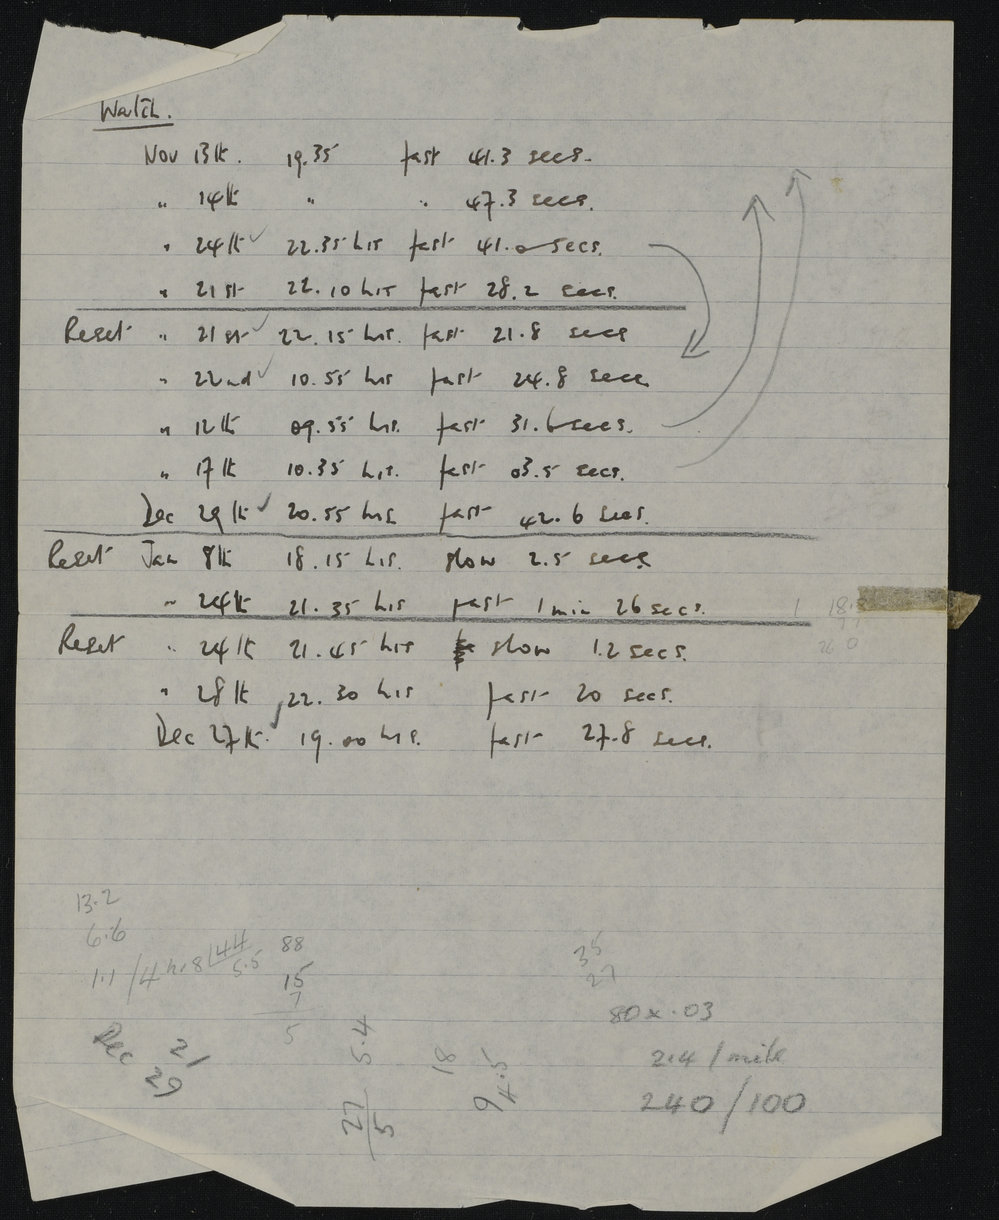 Watch.
Nov 13th. 19.35 fast 41.3 secs.
" 14th " " 47.3 secs.
" 24th ✓ 22.35 hrs fast 41.0 secs.
" 21st 22.10 hrs fast 28.2 secs.
Reset " 21st ✓ 22.15 hrs. fast 21.8 secs
" 22nd ✓ 10.55 hrs fast 24.8 secs
" 12th 09.55 hrs. fast 31.6 secs.
" 17th 10.35 hrs. fast 03.5 secs.
Dec 29th ✓ 20.55 hrs fast 42.6 secs.
Reset Jan 8th 18.15 hrs. slow 2.5 secs
" 24th 21.35 hrs fast 1 min 26 secs.
Reset " 24th 21.45 hrs slow 1.2 secs.
" 28th 22.30 hrs fast 20 secs.
Dec 27th. ✓ 19.00 hrs. fast 27.8 secs.
13.2
6.6
1.1 /4 hrs
144
5.5
88
15
7
5
35
27
80 x .03
2.4 / mile
240 / 100
Dec 21
29
27
5
5.4
18
9
4.5